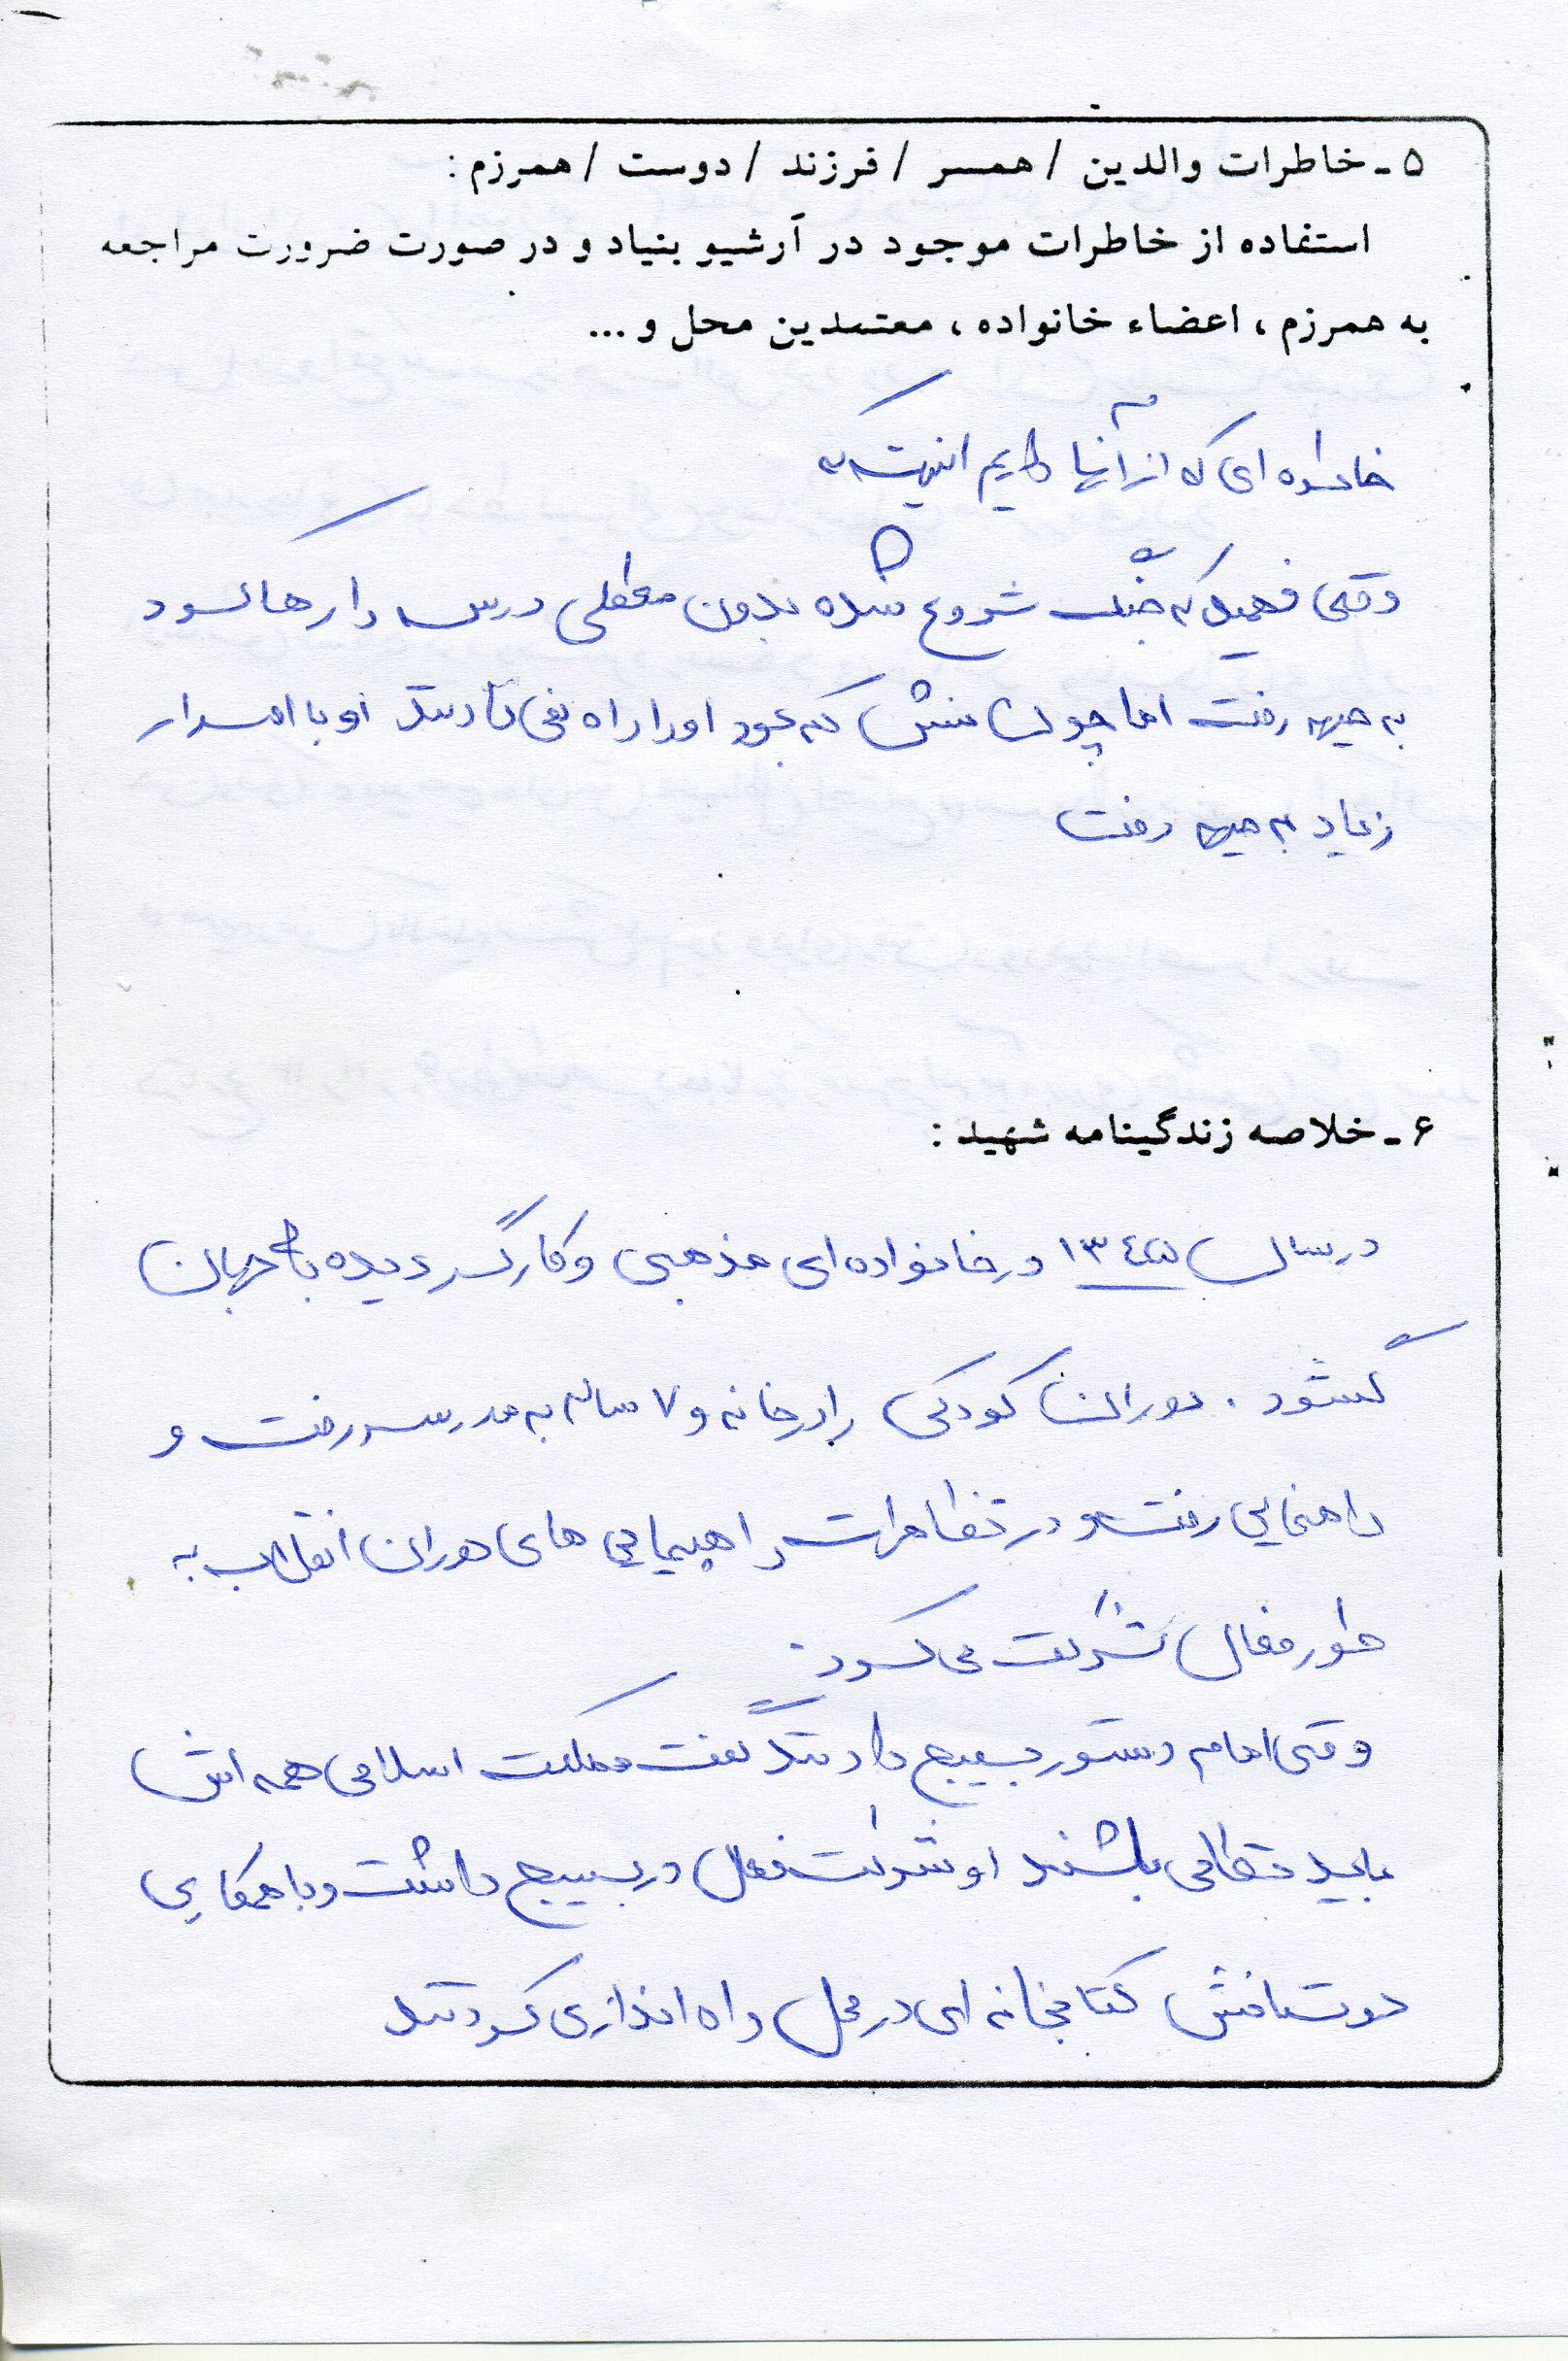 ۵ ـ خاطرات والدین / همسر / فرزند / دوست / همرزم :
استفاده از خاطرات موجود در آرشیو بنیاد و در صورت ضرورت مراجعه
به همرزم ، اعضاء خانواده ، معتمدین محل و ...
خاطره ای که از آنها داریم اینست که
وقتی فهمید که جنگ شروع شده بدون معطلی درس را رها کرد
به جبهه رفت اما چون سنش کم بود او را راه نمی دادند او با اصرار
زیاد به جبهه رفت
۶ ـ خلاصه زندگینامه شهید :
در سال ۱۳۴۵ در خانواده ای مذهبی و کارگر دیده به جهان
گشود . دوران کودکی را در خانه و ۷ ساله به مدرسه رفت و
راهنمایی رفت و در تظاهرات و راهپیمایی های دوران انقلاب به
طور فعال شرکت می کرد .
وقتی امام دستور بسیج دادند گفت مملکت اسلامی همه اش
باید نظامی باشند او شرکت فعال در بسیج داشت و با همکاری
دوستانش کتابخانه ای در محل راه اندازی کردند